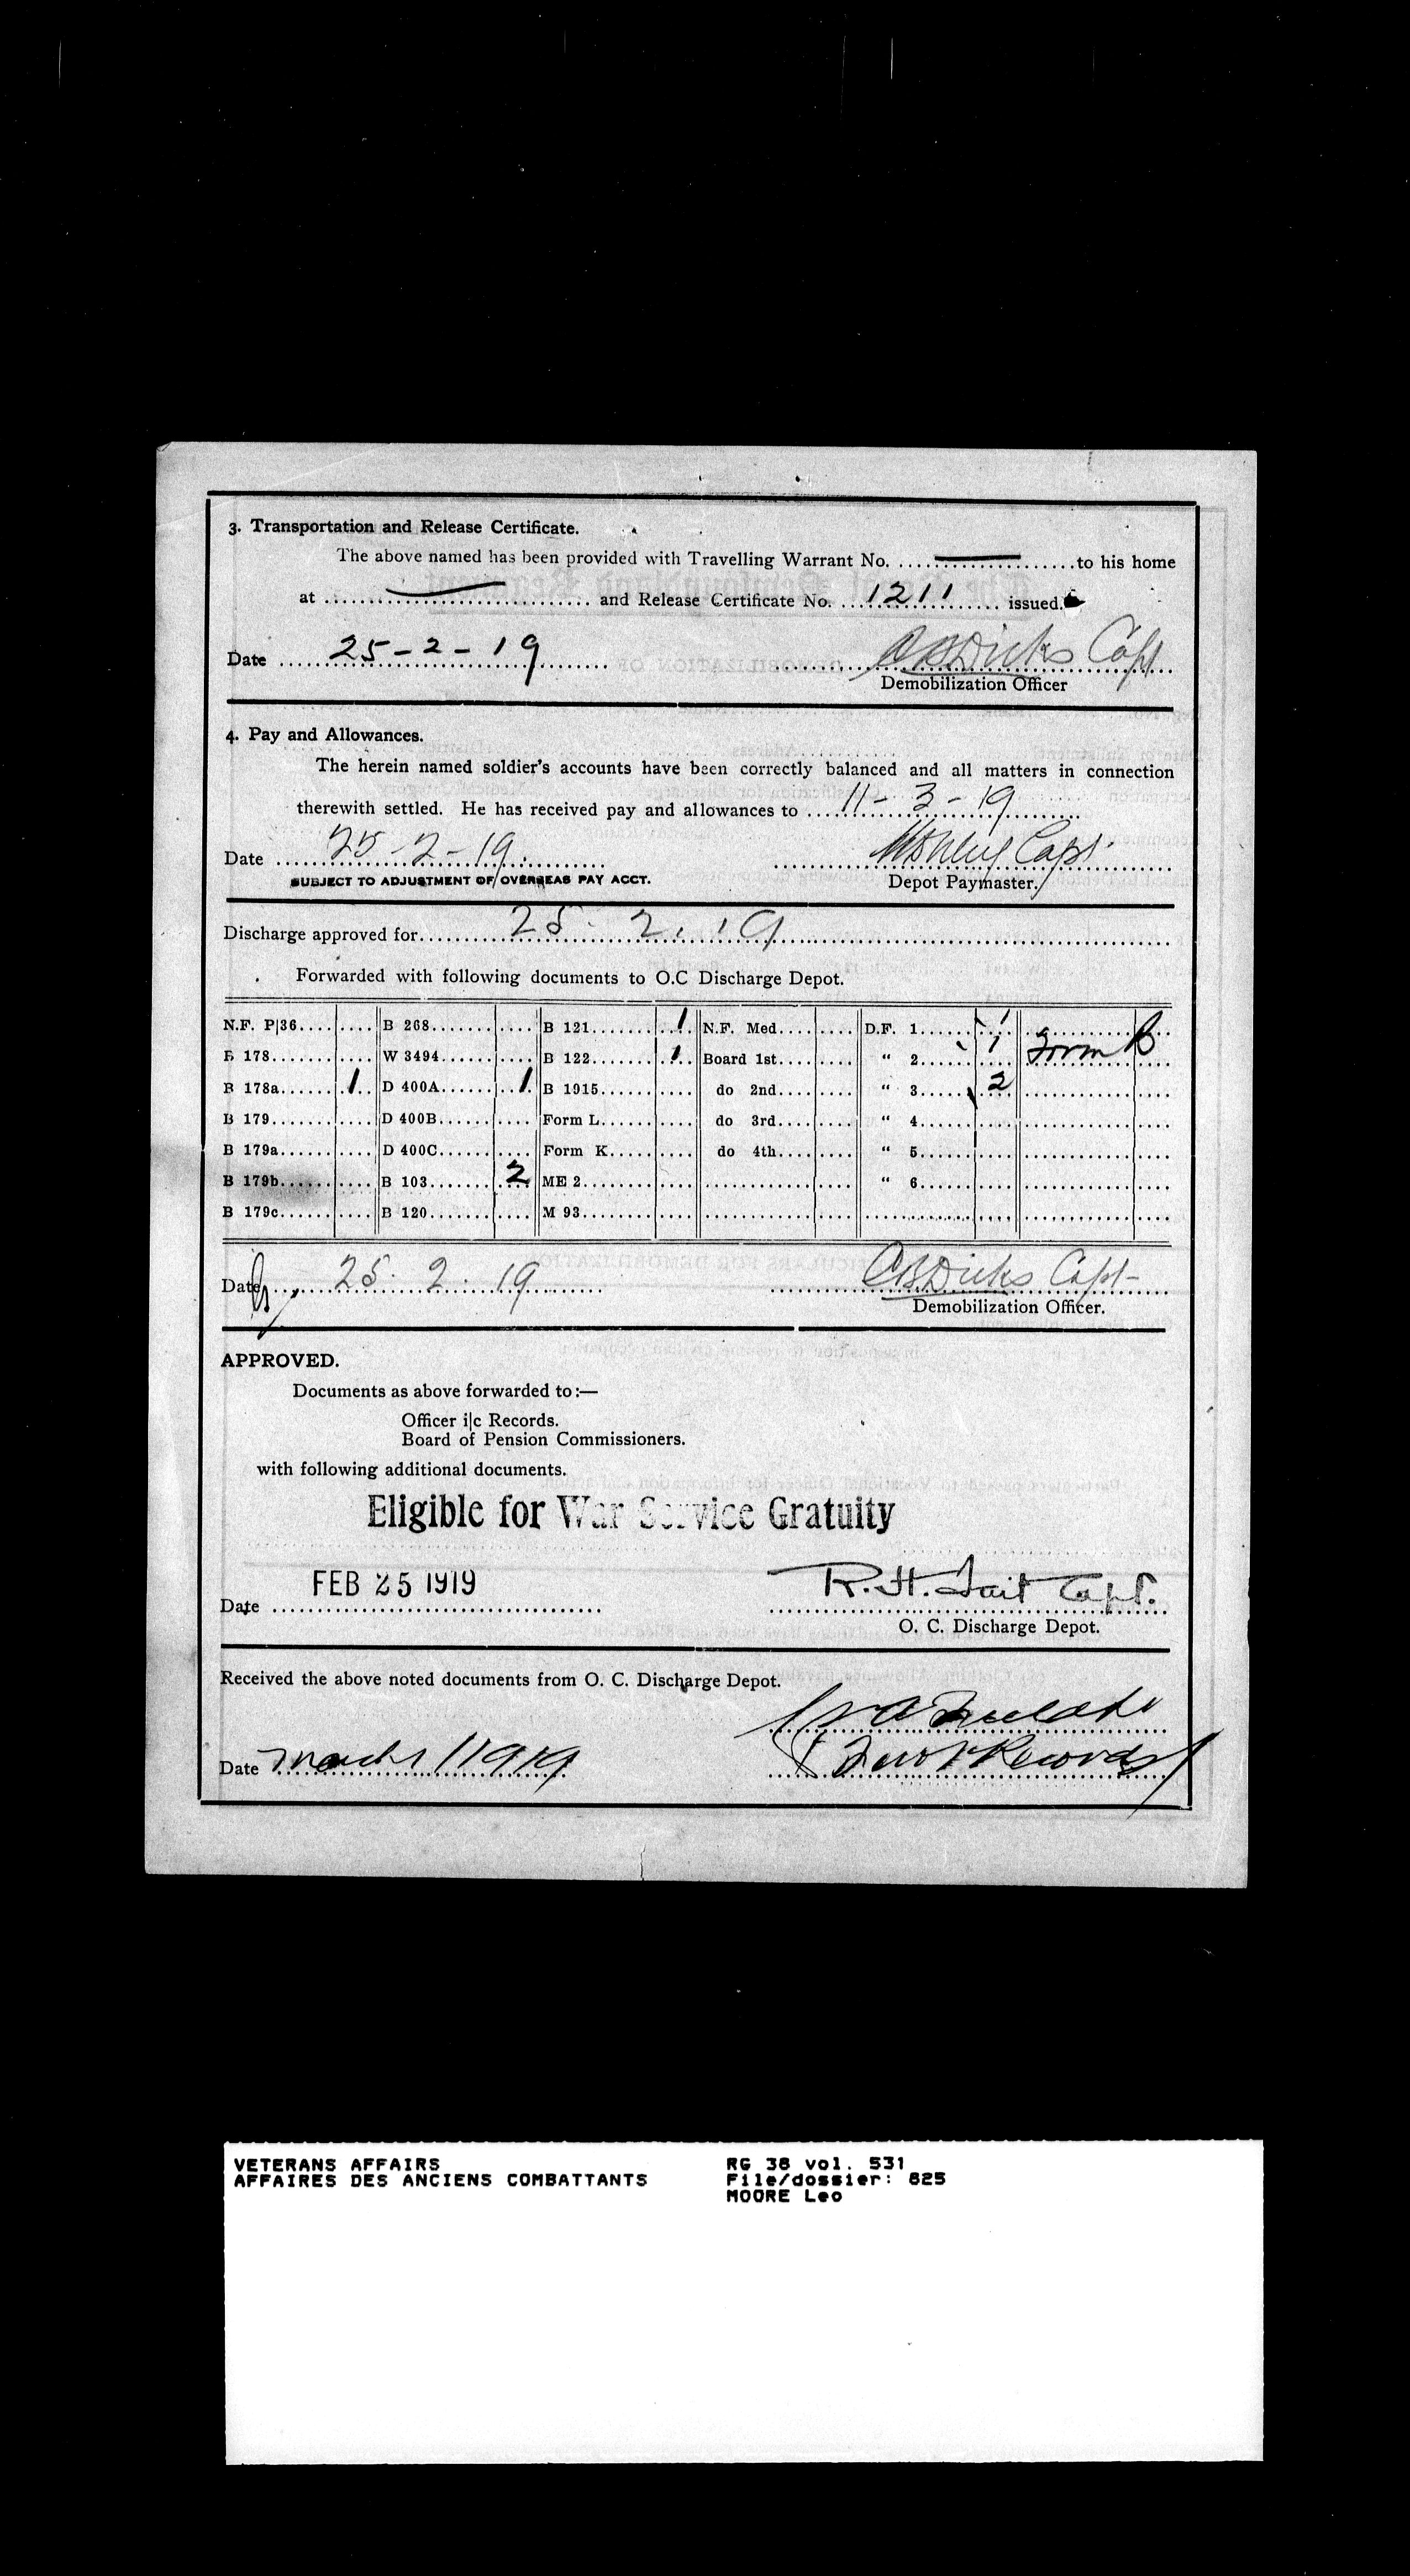 3. Transportation and Release Certificate.
The above named has been provided with Travelling Warrant No. .................... to his home
at .............................. and Release Certificate No. 1211 issued.
Date 25-2-19 Dicks Capt
Demobilization Officer
4. Pay and Allowances.
The herein named soldier's accounts have been correctly balanced and all matters in connection
therewith settled. He has received pay and allowances to 11-3-19
Date 25-2-19. Capt.
SUBJECT TO ADJUSTMENT OF OVERSEAS PAY ACCT. Depot Paymaster.
Discharge approved for 25. 2. 19
Forwarded with following documents to O.C Discharge Depot.
N.F. P|36 B 268 B 121 1 N.F. Med D.F. 1 1
B 178 W 3494 B 122 1 Board 1st " 2 1 Form B
B 178a 1 D 400A 1 B 1915 do 2nd " 3 2
B 179 D 400B Form L do 3rd " 4
B 179a D 400C Form K do 4th " 5
B 179b B 103 2 ME 2 " 6
B 179c B 120 M 93
Date 25. 2. 19 Dicks Capt
Demobilization Officer.
APPROVED.
Documents as above forwarded to:—
Officer i|c Records.
Board of Pension Commissioners.
with following additional documents.
Eligible for War Service Gratuity
Date FEB 25 1919 R. H. Tait Capt.
O. C. Discharge Depot.
Received the above noted documents from O. C. Discharge Depot.
Date March 1 1919 Records
VETERANS AFFAIRS RG 38 vol. 531
AFFAIRES DES ANCIENS COMBATTANTS File/dossier: 625
MOORE Leo